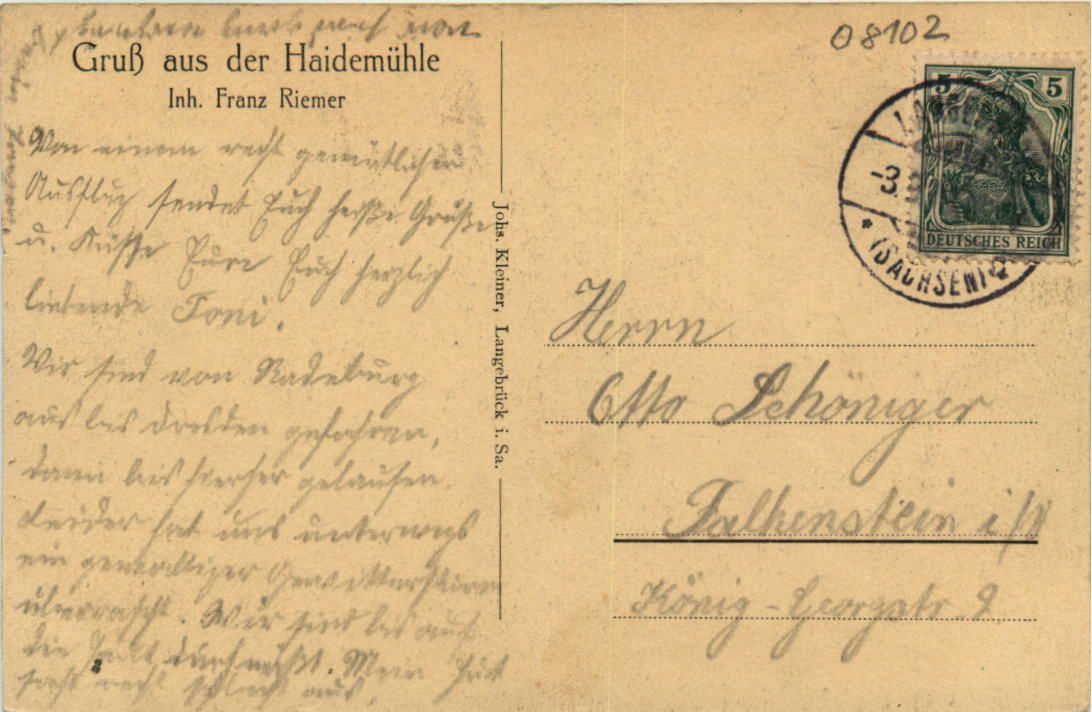 Gruß aus der Haidemühle
Inh. Franz Riemer
Von einem recht gemütlichen
Ausflug sendet Euch heiße Grüße
u. Küsse Eure Euch herzlich
liebende Toni.
Wir sind von Radeburg
aus bis Dresden gefahren,
dann bis hierher gelaufen.
Leider hat uns unterwegs
ein gewaltiger Gewittersturm
überrascht. Wir sind bis auf
die Haut durchnäßt. Mein Hut
sieht recht schlecht aus.
Johs. Kleiner, Langebrück i. Sa.
08102
5 5
DEUTSCHES REICH
-3
(SACHSEN) *2
Herrn
Otto Schöniger
Falkenstein i/V
König-Georgstr. 2